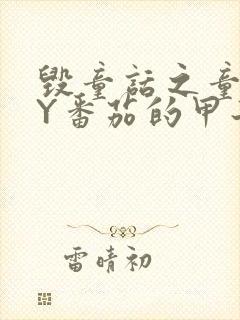 毁童话之童
Y番茄的甲
雷晴初